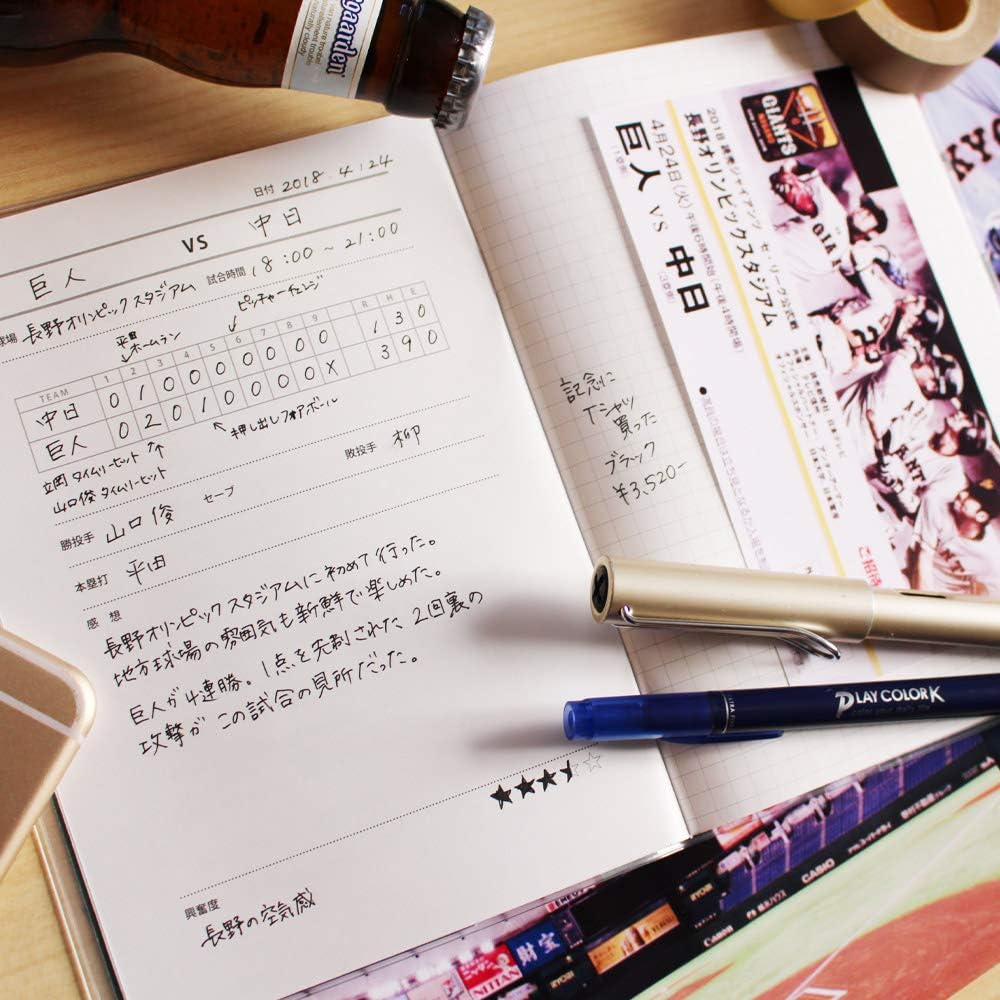 Hoegaarden
日付 2018.4.24
巨人 VS 中日
球場 長野オリンピックスタジアム 試合時間 18:00～21:00
平田 ホームラン
ピッチャーチェンジ
TEAM 1 2 3 4 5 6 7 8 9 R H E
中日 0 1 0 0 0 0 0 0 0 1 3 0
巨人 0 2 0 1 0 0 0 0 X 3 9 0
立岡 タイムリーヒット
山口俊 タイムリーヒット
押し出しフォアボール
勝投手 山口俊 セーブ 敗投手 柳
本塁打 平田
感想
長野オリンピックスタジアムに初めて行った。
地方球場の雰囲気も新鮮で楽しめた。
巨人が4連勝。1点を先制された、2回裏の
攻撃が この試合の見所だった。
★★★
興奮度
長野の空気感
記念に
Tシャツ
買った
ブラック
¥3,520-
GIANTS
2018 読売ジャイアンツ セ・リーグ公式戦
長野オリンピックスタジアム
4月24日(火) 午後6時開始/午後4時開場
巨人 VS 中日
(1塁側) (3塁側)
ご招待
PLAY COLOR K
財宝
NITTAN
RYOBI
RYOBI
Canon
CASIO